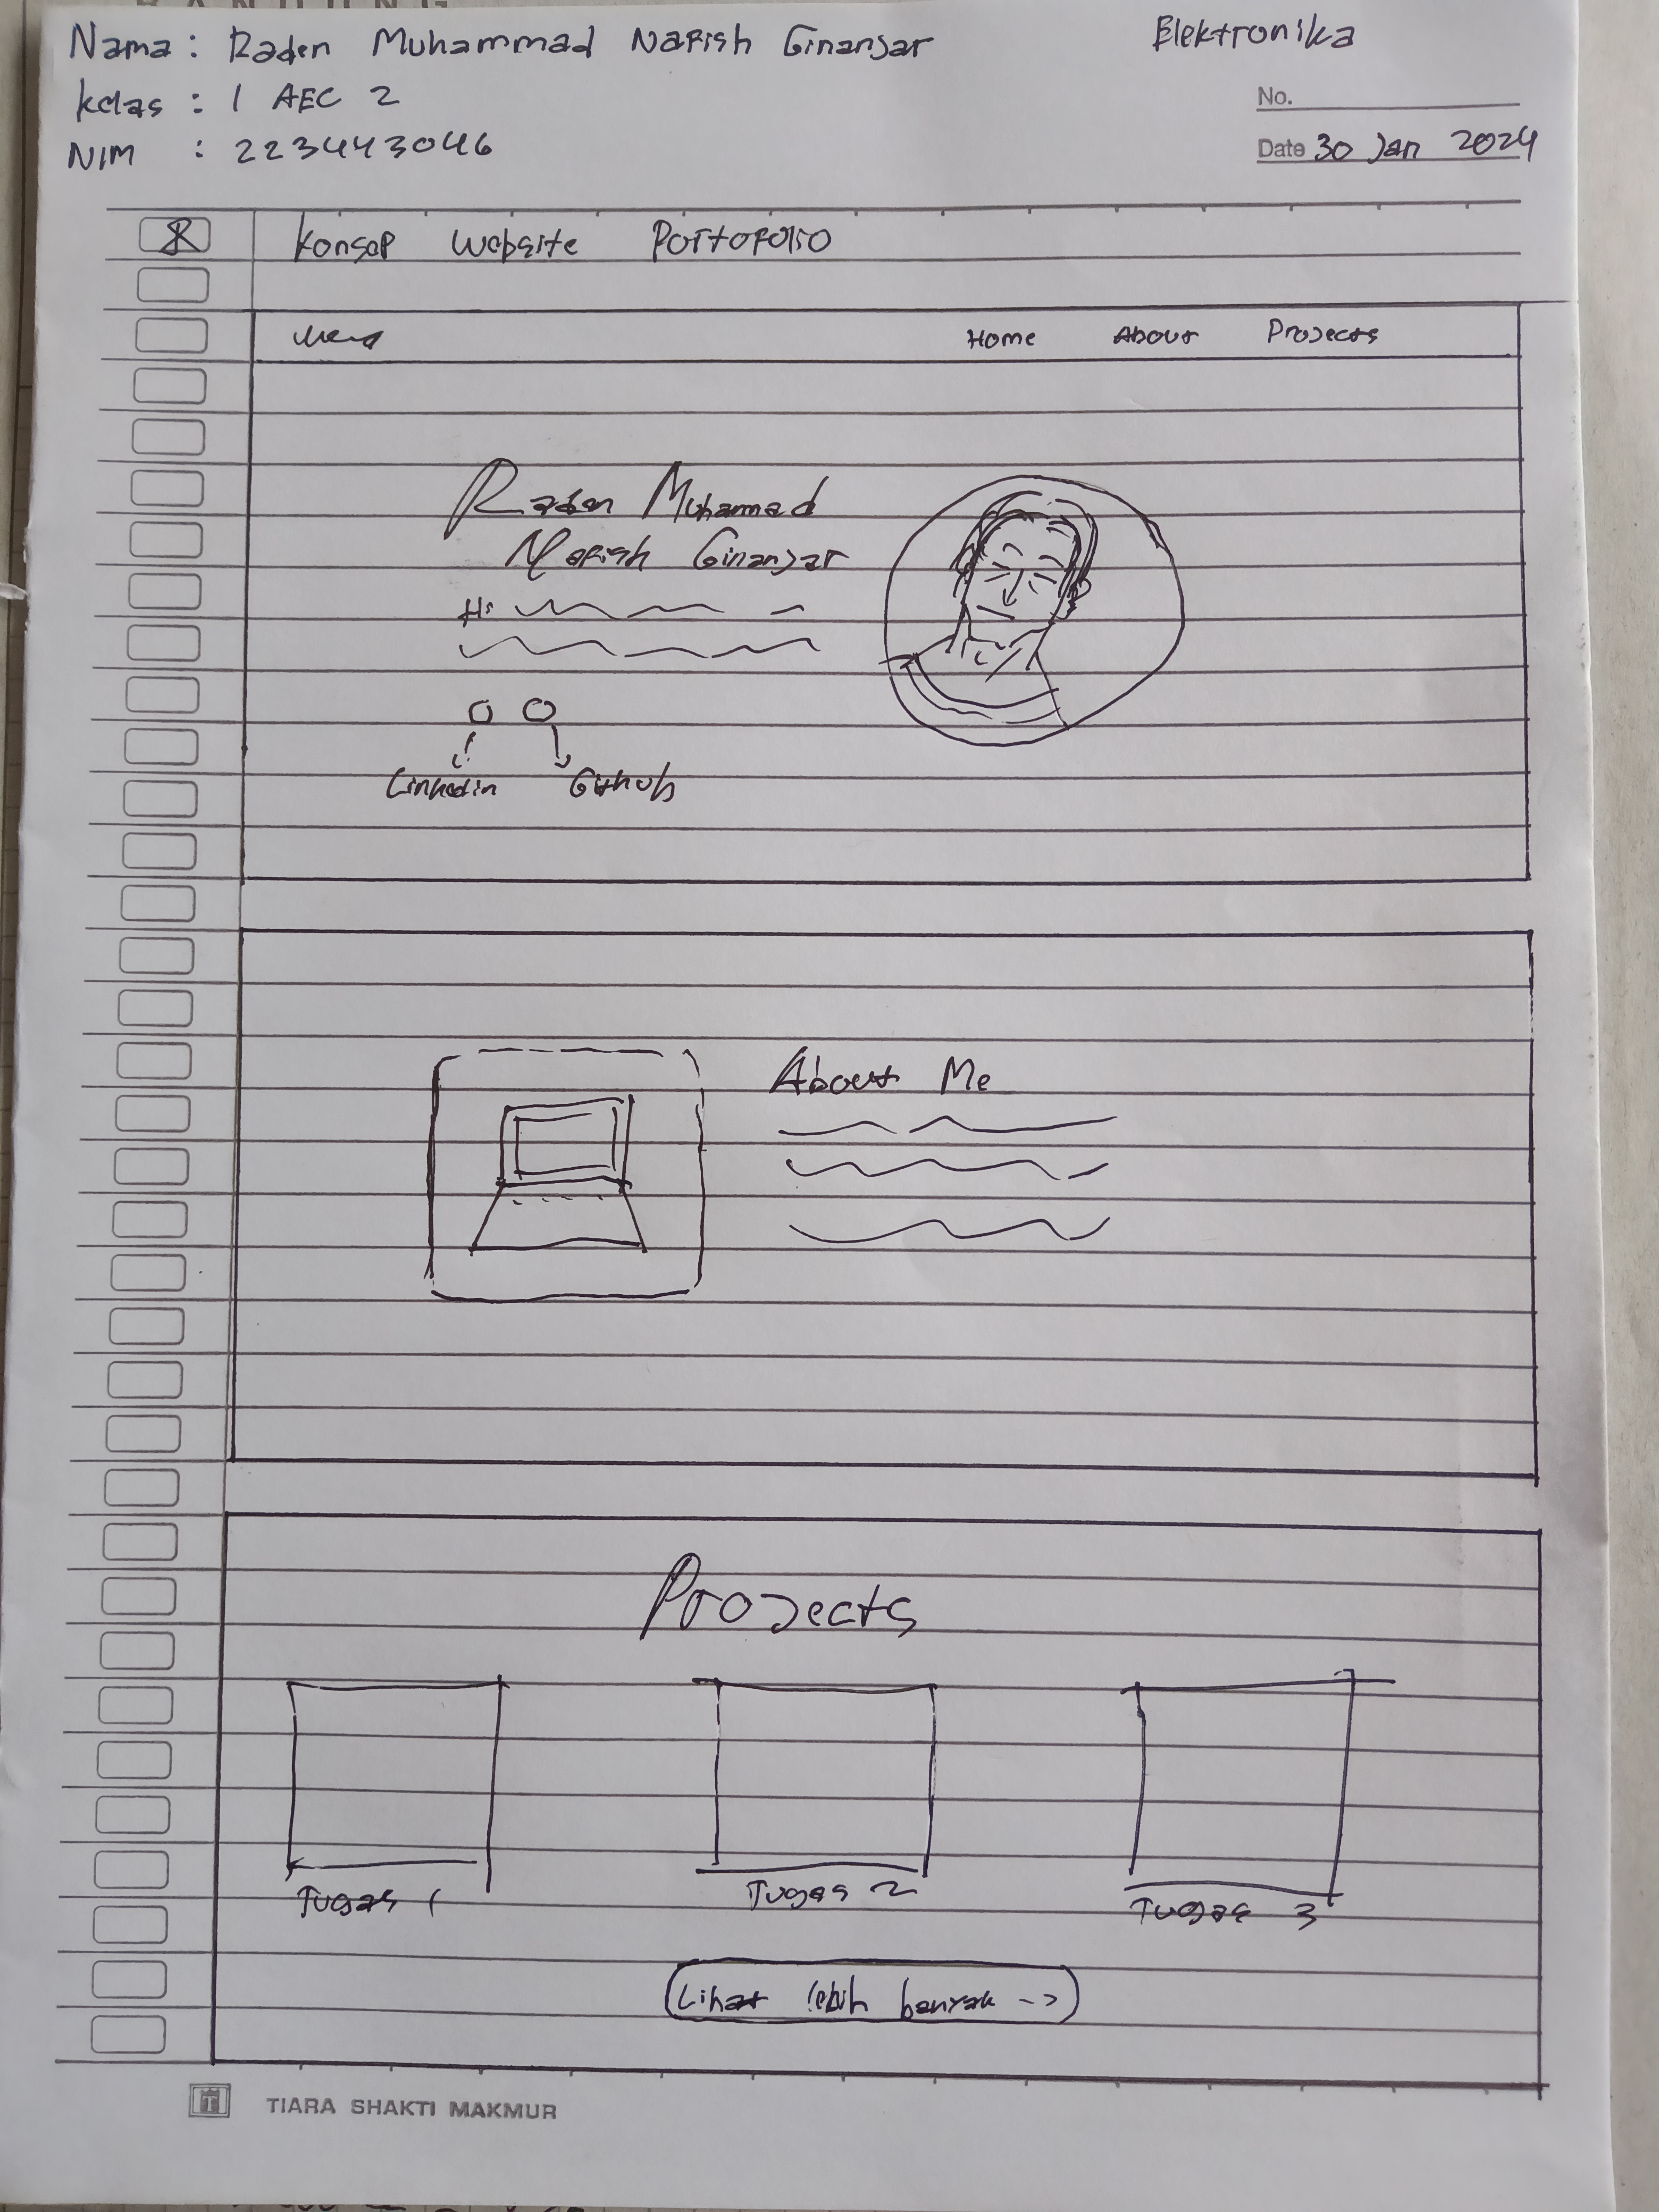 Nama : Raden Muhammad Nafish Ginanjar
Elektronika
kelas : 1 AEC 2
NIM : 223443046
No.
Date 30 Jan 2024
Konsep Website Portofolio
Home About Projects
Raden Muhammad
Nafish Ginanjar
Hi
Linkedin Github
About Me
Projects
Tugas 1
Tugas 2
Tugas 3
Lihat lebih banyak -->
TIARA SHAKTI MAKMUR